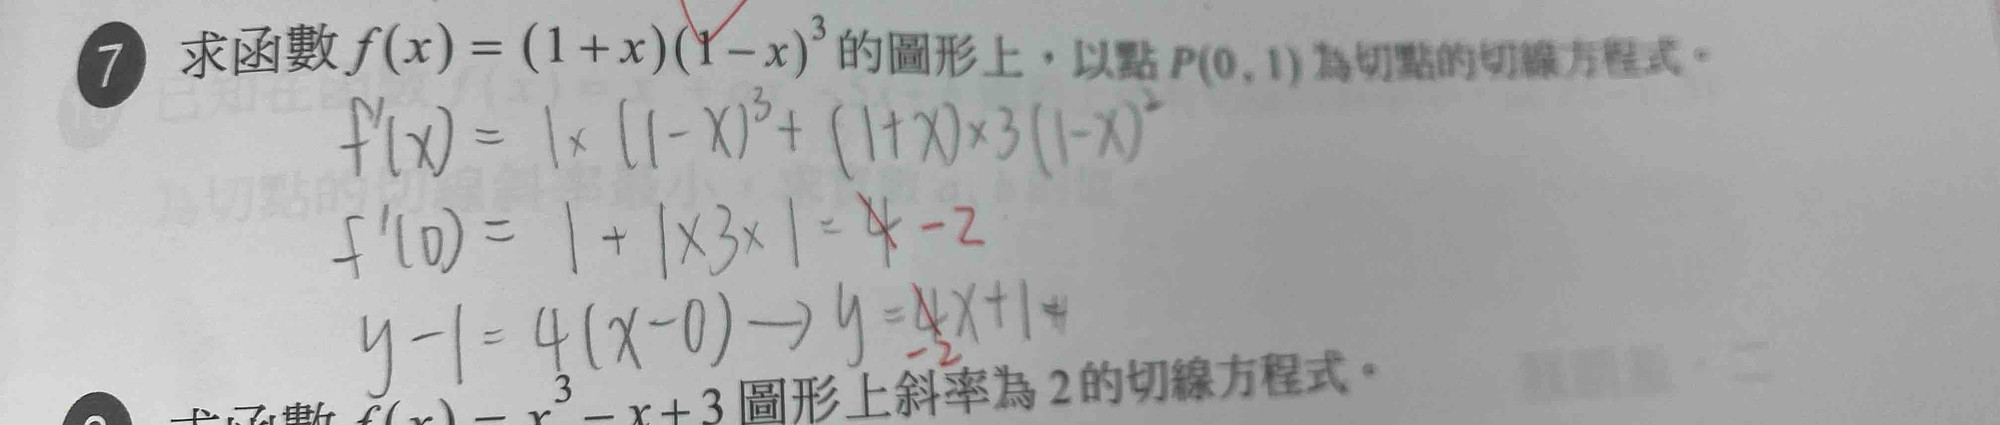 7 求函數 f(x) = (1+x)(1-x)³ 的圖形上，以點 P(0, 1) 為切點的切線方程式。
f'(x) = 1× (1-x)³ + (1+x)×3(1-x)²
f'(0) = 1 + 1×3×1 = 4 -2
y-1 = 4(x-0) → y = 4x+1
-2
求函數 f(x) = x³ - x + 3 圖形上斜率為 2 的切線方程式。